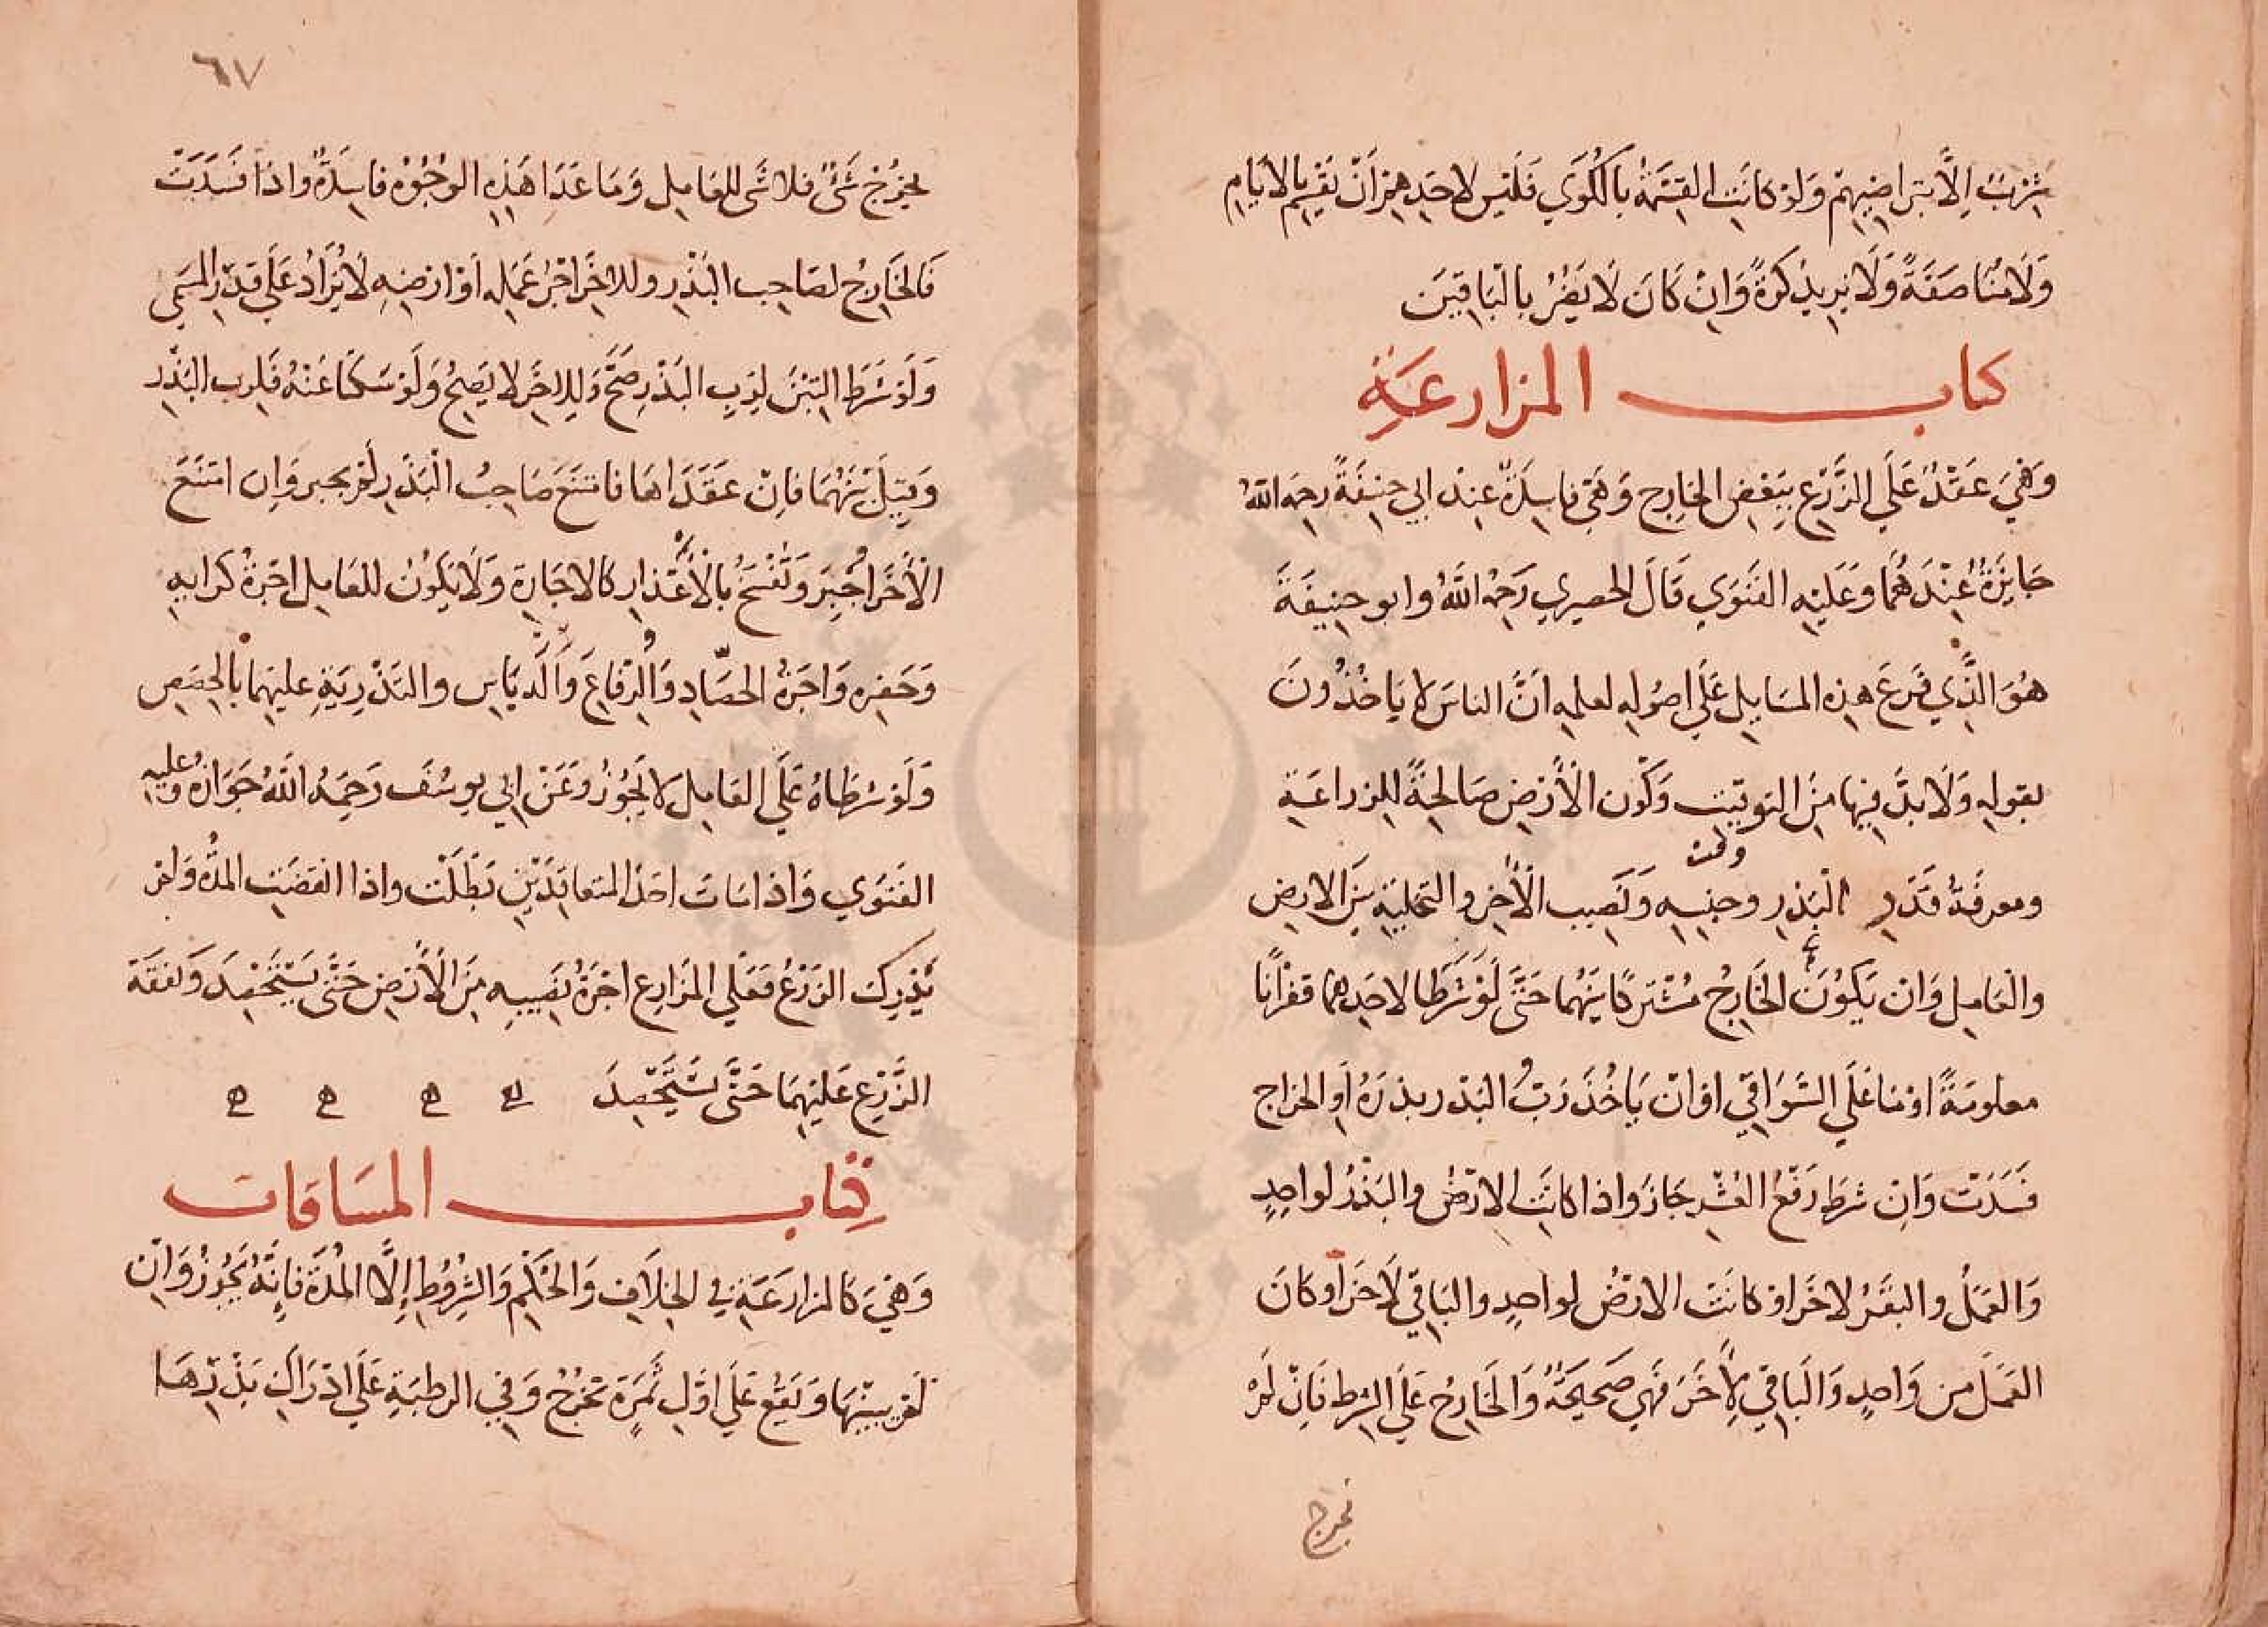 شرب الا بتراضيهم ولو كانت القسمة بالكوي فليس لاحدهم ان يقسم بالايام
ولا مناصفة ولا يزيد كوة وان كان لا يضر بالباقين
كتاب المزارعة
وهي عقد علي الزرع ببعض الخارج وهي فاسدة عند ابي حنيفة رحمه الله
جايزة عندهما وعليه الفتوي قال الحصيري رحمه الله وابو حنيفة
هو الذي فرع هذه المسايل علي اصوله لعلمه ان الناس لا ياخذون
بقوله ولا بد فيها من التوقيت وكون الارض صالحة للزراعة
ومعرفة قدر البذر وجنسه ونصيب الاخر والتخلية بين الارض
والعامل وان يكون الخارج مشتركا بينهما حتي لو شرطا لاحدهما قفزانا
معلومة او ما علي السواقي او ان ياخذ رب البذر بذره او الخراج
فسدت وان شرط رفع العشر جاز واذا كانت الارض والبذر لواحد
والعمل والبقر لاخر او كانت الارض لواحد والباقي لاخر او كان
العمل من واحد والباقي لاخر فهي صحيحة والخارج علي الشرط فان لم
يخرج
٦٧
يخرج شئ فلا شئ للعامل وما عدا هذه الوجوه فاسدة واذا فسدت
فالخارج لصاحب البذر وللاخر اجر عمله او ارضه لا يزاد علي قدر المسمي
ولو شرط التبن لرب البذر صح وللاخر لا يصح ولو سكتا عنه فلرب البذر
وقيل بينهما فان عقداها فامتنع صاحب البذر لم يجبر وان امتنع
الاخر اجبر وتفسخ بالاعذار كالاجارة ولا يكون للعامل اجرة كرابه
وحفره واجرة الحصاد والرفاع والدياس والتذرية عليهما بالحصص
ولو شرطاه علي العامل لا يجوز وعن ابي يوسف رحمه الله جوازه وعليه
الفتوي واذا مات احد المتعاقدين بطلت واذا انقضت المدة ولم
يدرك الزرع فعلي المزارع اجرة نصيبه من الارض حتي يستحصد ونفقة
الزرع عليهما حتي يستحصد
كتاب المساقات
وهي كالمزارعة في الخلاف والحكم والشروط الا المدة فانه يجوز وان
لم يبينها ويقع علي اول ثمرة تخرج وفي الرطبة علي ادراك بذرها